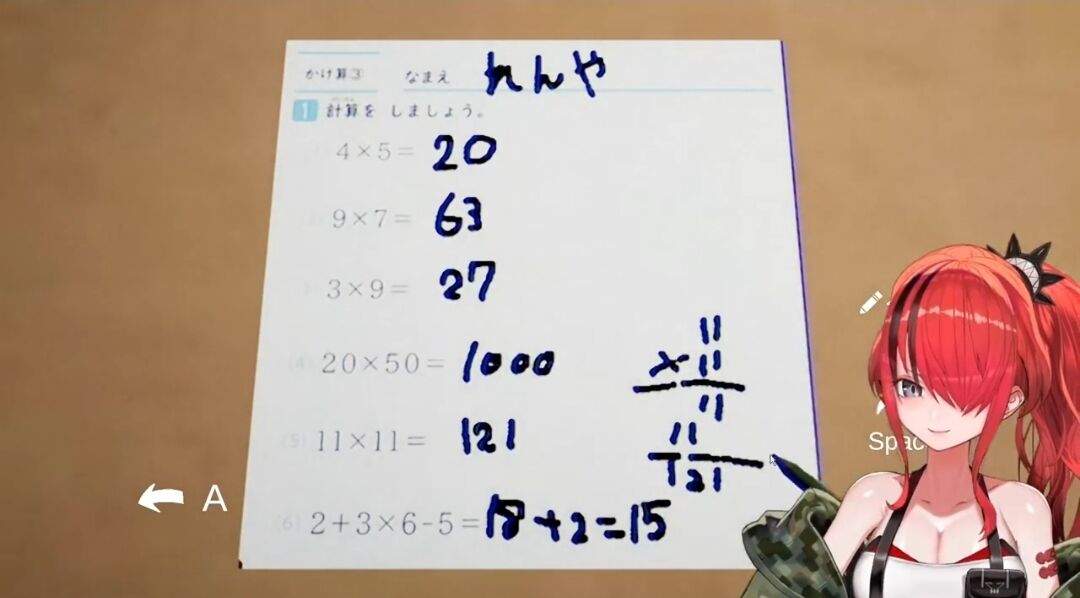 かけ算③ なまえ れんや
1 計算を しましょう。
4×5= 20
9×7= 63
3×9= 27
(4) 20×50= 1000
(5) 11×11= 121
11
×11
11
11
121
(6) 2+3×6-5=18+2=15
A